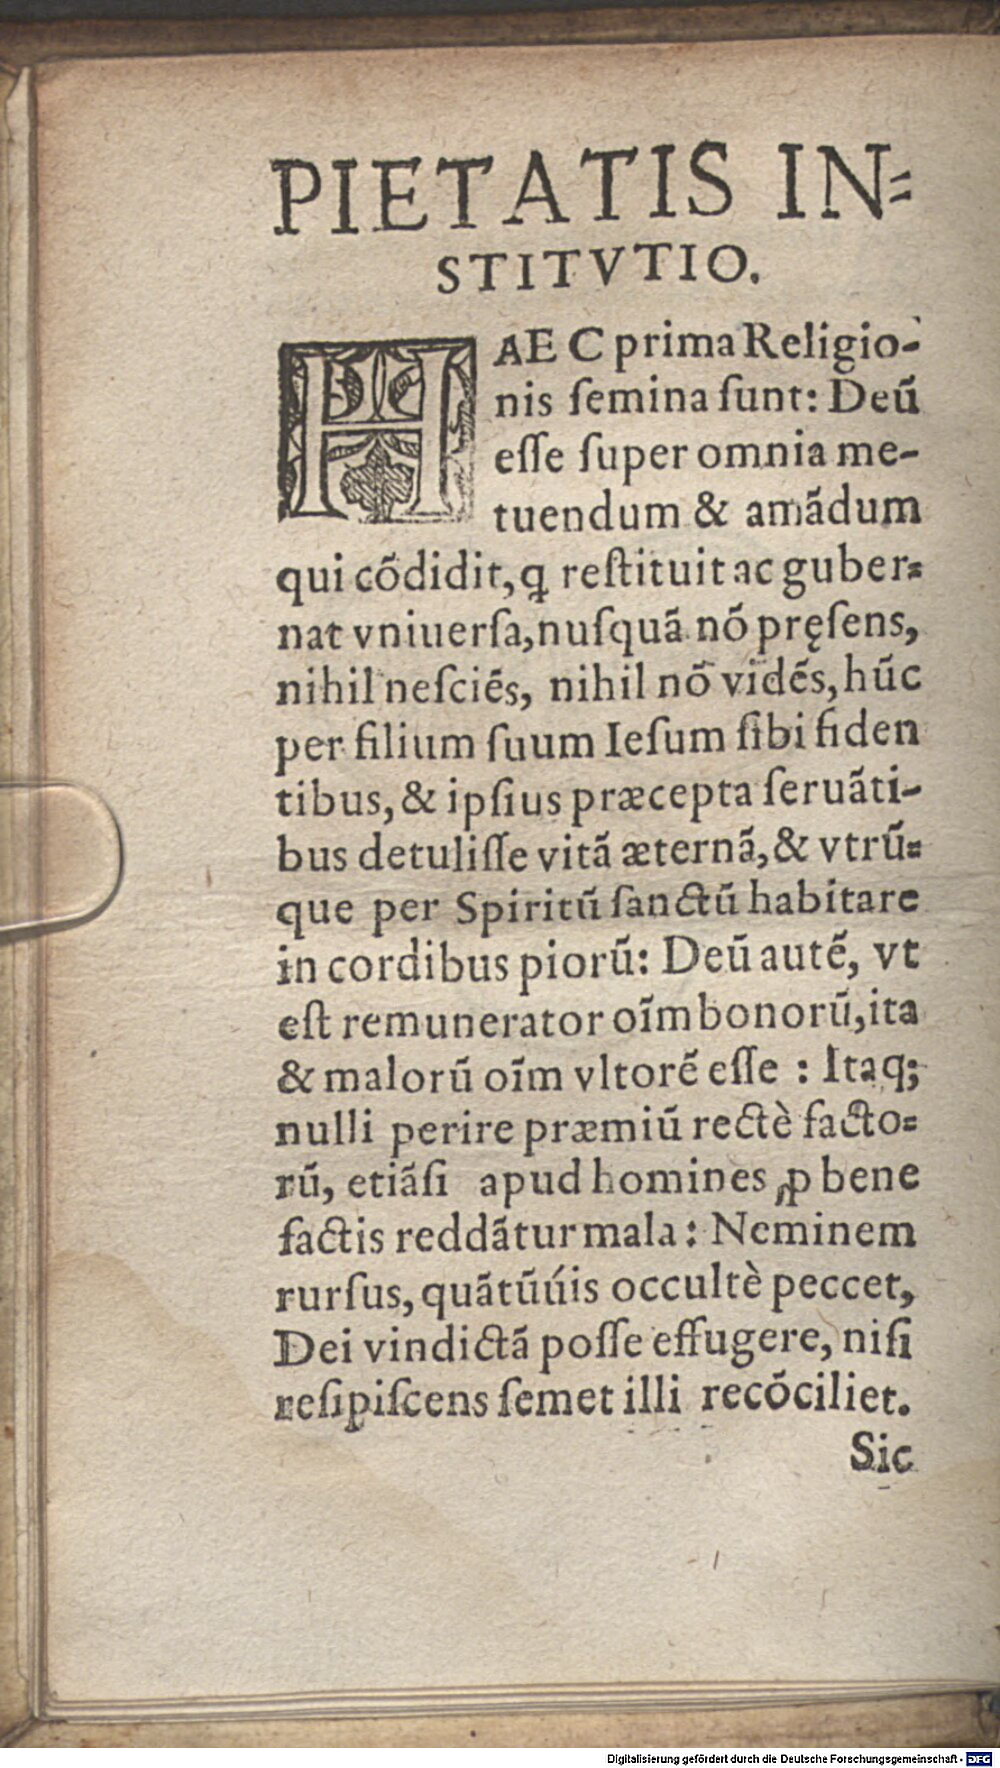 PIETATIS IN=
STITVTIO.
HAEC prima Religio-
nis ſemina ſunt: Deũ
eſſe ſuper omnia me-
tuendum & amãdum
qui cõdidit, ꝗ reſtituit ac guber=
nat vniuerſa, nuſquã nõ pręſens,
nihil neſciẽs, nihil nõ vidẽs, hũc
per filium ſuum Ieſum ſibi fiden
tibus, & ipſius præcepta ſeruãti-
bus detuliſſe vitã æternã, & vtrũ=
que per Spiritũ ſanctũ habitare
in cordibus piorũ: Deũ autẽ, vt
eſt remunerator oĩm bonorũ, ita
& malorũ oĩm vltorẽ eſſe : Itaq;
nulli perire præmiũ rectè facto=
rũ, etiãſi apud homines ꝓ bene
factis reddãtur mala : Neminem
rurſus, quãtũúis occultè peccet,
Dei vindictã poſſe effugere, niſi
reſipiſcens ſemet illi recõciliet.
Sic
Digitalisierung gefördert durch die Deutsche Forschungsgemeinschaft - DFG